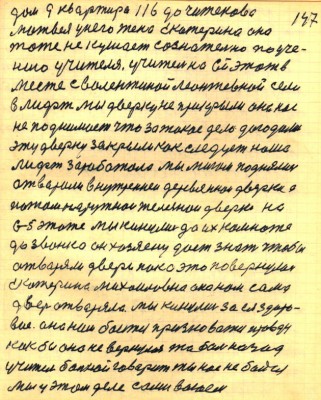 147
дом 9 квартира 116 до читекова
матвея у него жена Екатерина она
тоже не кушает сознателно по уче-
нию учителя, учител на 6й этож в
месте с валентиной леонтевной сели
в лифт мы дверку не прикрыли она нас
не поднимает что за токое дело догодали
эту дверку закрыли как следует наша
лифт заработала мы мигом поднялис
отварили внутренею деревяную дверка а
потом наружную железную дверю на
6-5 этоже мы кинулис до их комноте
до звонка он хозяену дает знат чтобы
отваряли двер пока это повернулис
Екатерина михаиловна она нам сама
двер отваряла. мы кинулис за ея здоро-
вие. она нам боится призноватса правду
как бы она не вернулся та бол назад
учител больной говорит ты нас не бойся
мы у этом деле сами